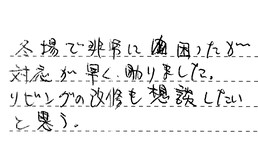 冬場で非常に困ったが
対応が早く、助りました。
リビングの改修も想談したい
と思う.